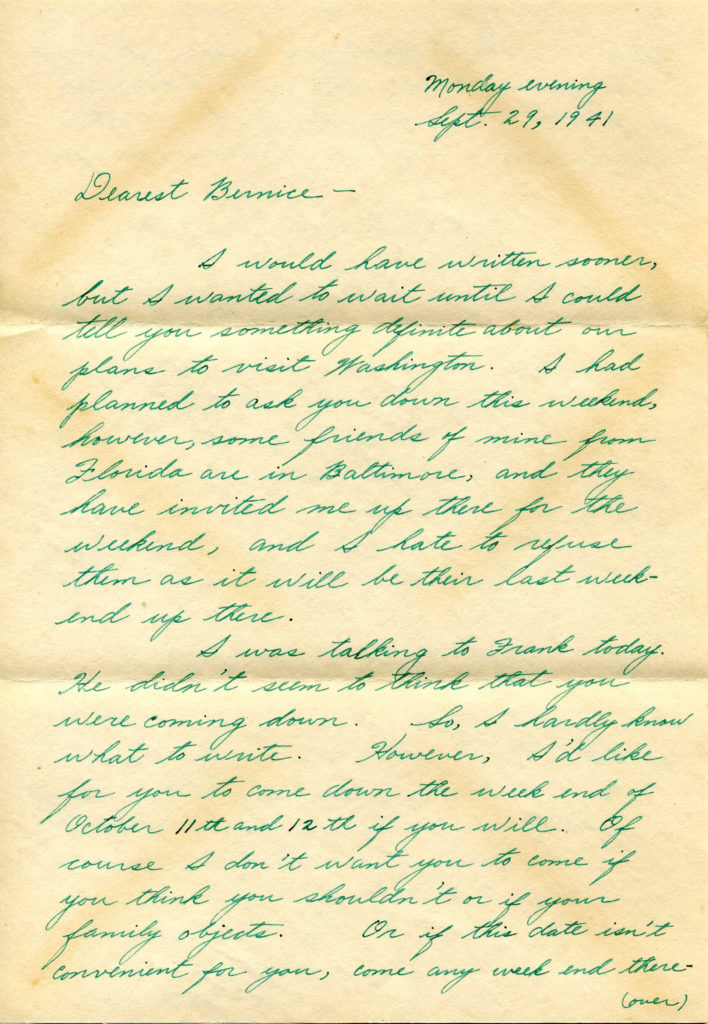 Monday evening
Sept. 29, 1941
Dearest Bernice —
I would have written sooner,
but I wanted to wait until I could
tell you something definite about our
plans to visit Washington. I had
planned to ask you down this weekend,
however, some friends of mine from
Florida are in Baltimore, and they
have invited me up there for the
weekend, and I hate to refuse
them as it will be their last week-
end up there.
I was talking to Frank today.
He didn't seem to think that you
were coming down. So, I hardly know
what to write. However, I'd like
for you to come down the week end of
October 11th and 12th if you will. Of
course I don't want you to come if
you think you shouldn't or if your
family objects. Or if this date isn't
convenient for you, come any week end there-
(over)